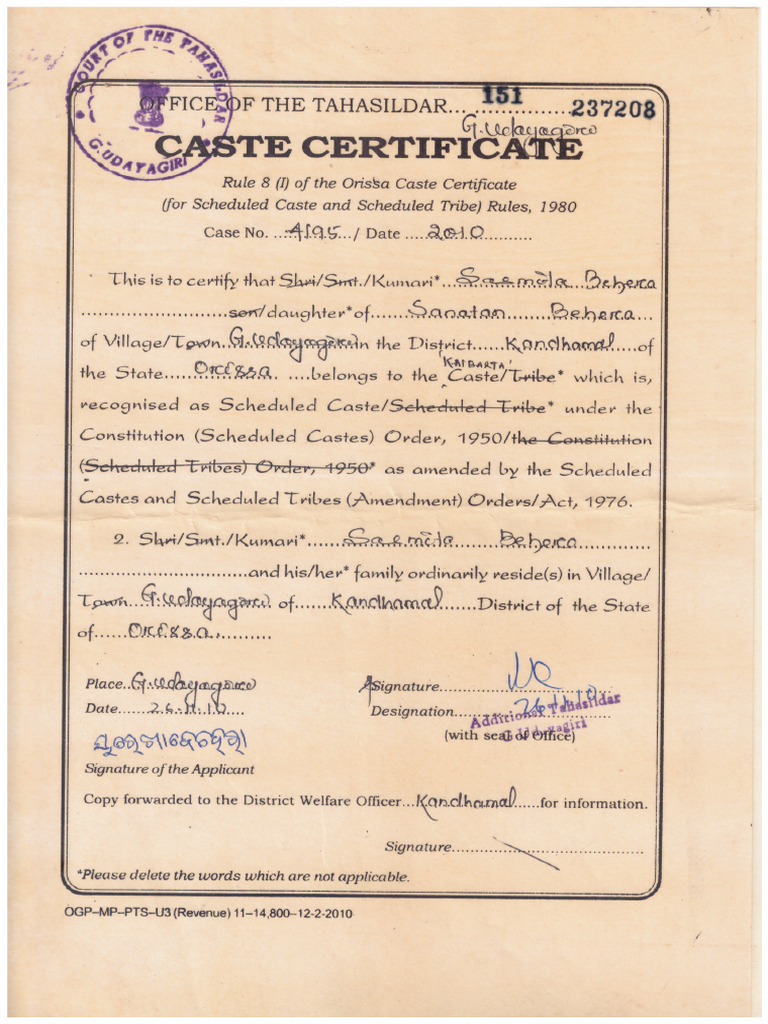 COURT OF THE TAHASILDAR
G. UDAYAGIRI
OFFICE OF THE TAHASILDAR... 151 ............... 237208
G.Udayagiri
CASTE CERTIFICATE
Rule 8 (I) of the Orissa Caste Certificate
(for Scheduled Caste and Scheduled Tribe) Rules, 1980
Case No. ...4195.../ Date ....2010..........
This is to certify that Shri/Smt./Kumari*...Sarmila Behera
........................son/daughter*of......Sanatan........Behera...
of Village/Town..G.Udayagiri..in the District.....Kandhamal.....of
'KAIBARTA'
the State......Orissa.......belongs to the Caste/Tribe* which is,
recognised as Scheduled Caste/Scheduled Tribe* under the
Constitution (Scheduled Castes) Order, 1950/the Constitution
(Scheduled Tribes) Order, 1950* as amended by the Scheduled
Castes and Scheduled Tribes (Amendment) Orders/Act, 1976.
2. Shri/Smt./Kumari*......Sarmila........Behera..............
...........................and his/her* family ordinarily reside(s) in Village/
Town..G.Udayagiri of.....Kandhamal......District of the State
of......Orissa...........
Place..G.Udayagiri
Signature..............................
Date.......26.11.10....
Designation...26/11/10
Additional Tahasildar
G.Udayagiri
(with seal of Office)
Signature of the Applicant
Copy forwarded to the District Welfare Officer...Kandhamal......for information.
Signature.................................
*Please delete the words which are not applicable.
OGP–MP–PTS–U3 (Revenue) 11–14,800–12-2-2010